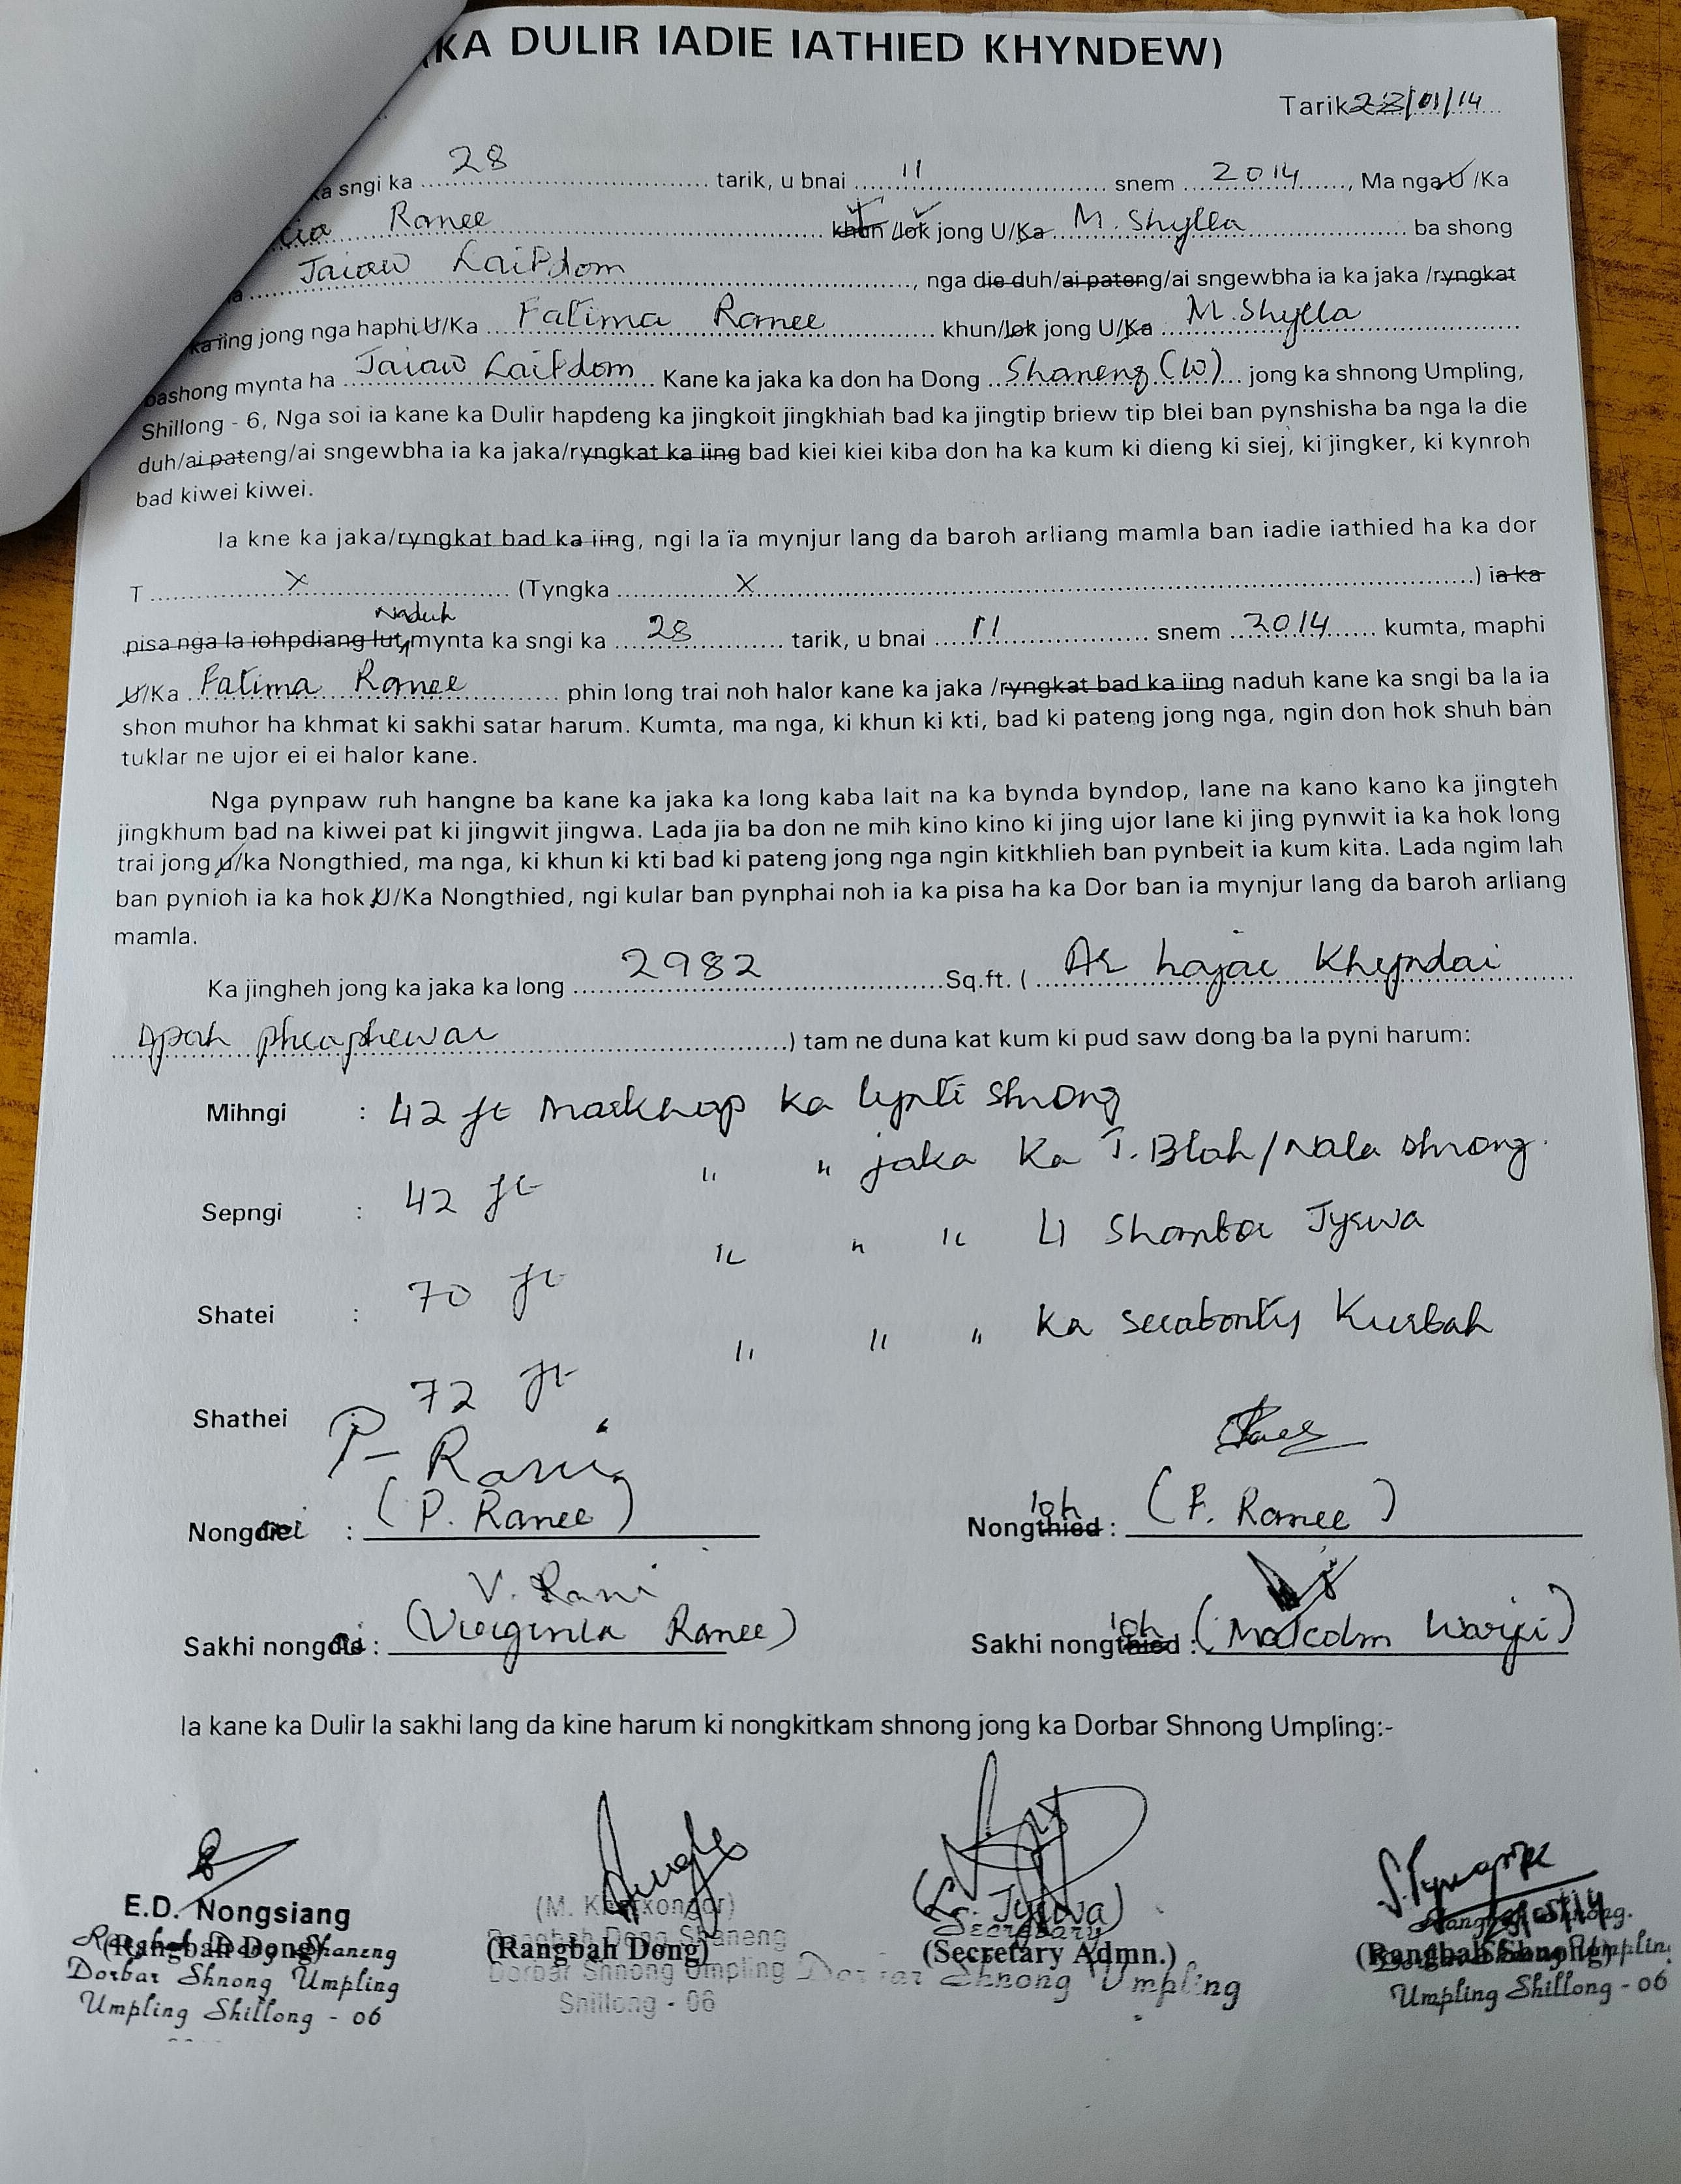 (KA DULIR IADIE IATHIED KHYNDEW)
Tarik 28/01/14
ka sngi ka 28 tarik, u bnai 11 snem 2014, Ma nga U/Ka
Ranee khun/lok jong U/Ka M. Shylla ba shong
Jaiaw Laitdom, nga die duh/ai pateng/ai sngewbha ia ka jaka /ryngkat
ka iing jong nga haphi U/Ka Fatima Ranee khun/lok jong U/Ka M. Shylla
bashong mynta ha Jaiaw Laitdom Kane ka jaka ka don ha Dong Shaneng (W) jong ka shnong Umpling,
Shillong - 6, Nga soi ia kane ka Dulir hapdeng ka jingkoit jingkhiah bad ka jingtip briew tip blei ban pynshisha ba nga la die
duh/ai pateng/ai sngewbha ia ka jaka/ryngkat ka iing bad kiei kiei kiba don ha ka kum ki dieng ki siej, ki jingker, ki kynroh
bad kiwei kiwei.
Ia kne ka jaka/ryngkat bad ka iing, ngi la ïa mynjur lang da baroh arliang mamla ban iadie iathied ha ka dor
T X (Tyngka X ) ia ka
pisa nga la iohpdiang lut, Naduh mynta ka sngi ka 28 tarik, u bnai 11 snem 2014 kumta, maphi
U/Ka Fatima Ranee phin long trai noh halor kane ka jaka /ryngkat bad ka iing naduh kane ka sngi ba la ia
shon muhor ha khmat ki sakhi satar harum. Kumta, ma nga, ki khun ki kti, bad ki pateng jong nga, ngin don hok shuh ban
tuklar ne ujor ei ei halor kane.
Nga pynpaw ruh hangne ba kane ka jaka ka long kaba lait na ka bynda byndop, lane na kano kano ka jingteh
jingkhum bad na kiwei pat ki jingwit jingwa. Lada jia ba don ne mih kino kino ki jing ujor lane ki jing pynwit ia ka hok long
trai jong u/ka Nongthied, ma nga, ki khun ki kti bad ki pateng jong nga ngin kitkhlieh ban pynbeit ia kum kita. Lada ngim lah
ban pynioh ia ka hok U/Ka Nongthied, ngi kular ban pynphai noh ia ka pisa ha ka Dor ban ia mynjur lang da baroh arliang
mamla.
Ka jingheh jong ka jaka ka long 2982 Sq.ft. ( Ar hajar Khyndai
spah phraphewar ) tam ne duna kat kum ki pud saw dong ba la pyni harum:
Mihngi : 42 ft markhap ka lynti shnong
Sepngi : 42 ft " " jaka Ka T. Blah/Nala shnong.
Shatei : 70 ft " " " U Shanbor Tyswa
Shathei : 72 ft " " " Ka Kurbah
P. Rani
Nongai : (P. Ranee) Nongthied : Ioh (F. Ranee)
V. Rani
Sakhi nongai : (Virginia Ranee) Sakhi nongthied : Ioh (Malcolm Warjri)
Ia kane ka Dulir la sakhi lang da kine harum ki nongkitkam shnong jong ka Dorbar Shnong Umpling:-
E.D. Nongsiang (M. Kharkongor)
Rangbah Dong Shaneng Rangbah Dong Shaneng Secretary
(Rangbah Dong) (Rangbah Dong) (Secretary Admn.) (Rangbah Shnong)
Dorbar Shnong Umpling Dorbar Shnong Umpling Dorbar Shnong Umpling
Umpling Shillong - 06 Shillong - 06 Umpling Shillong - 06